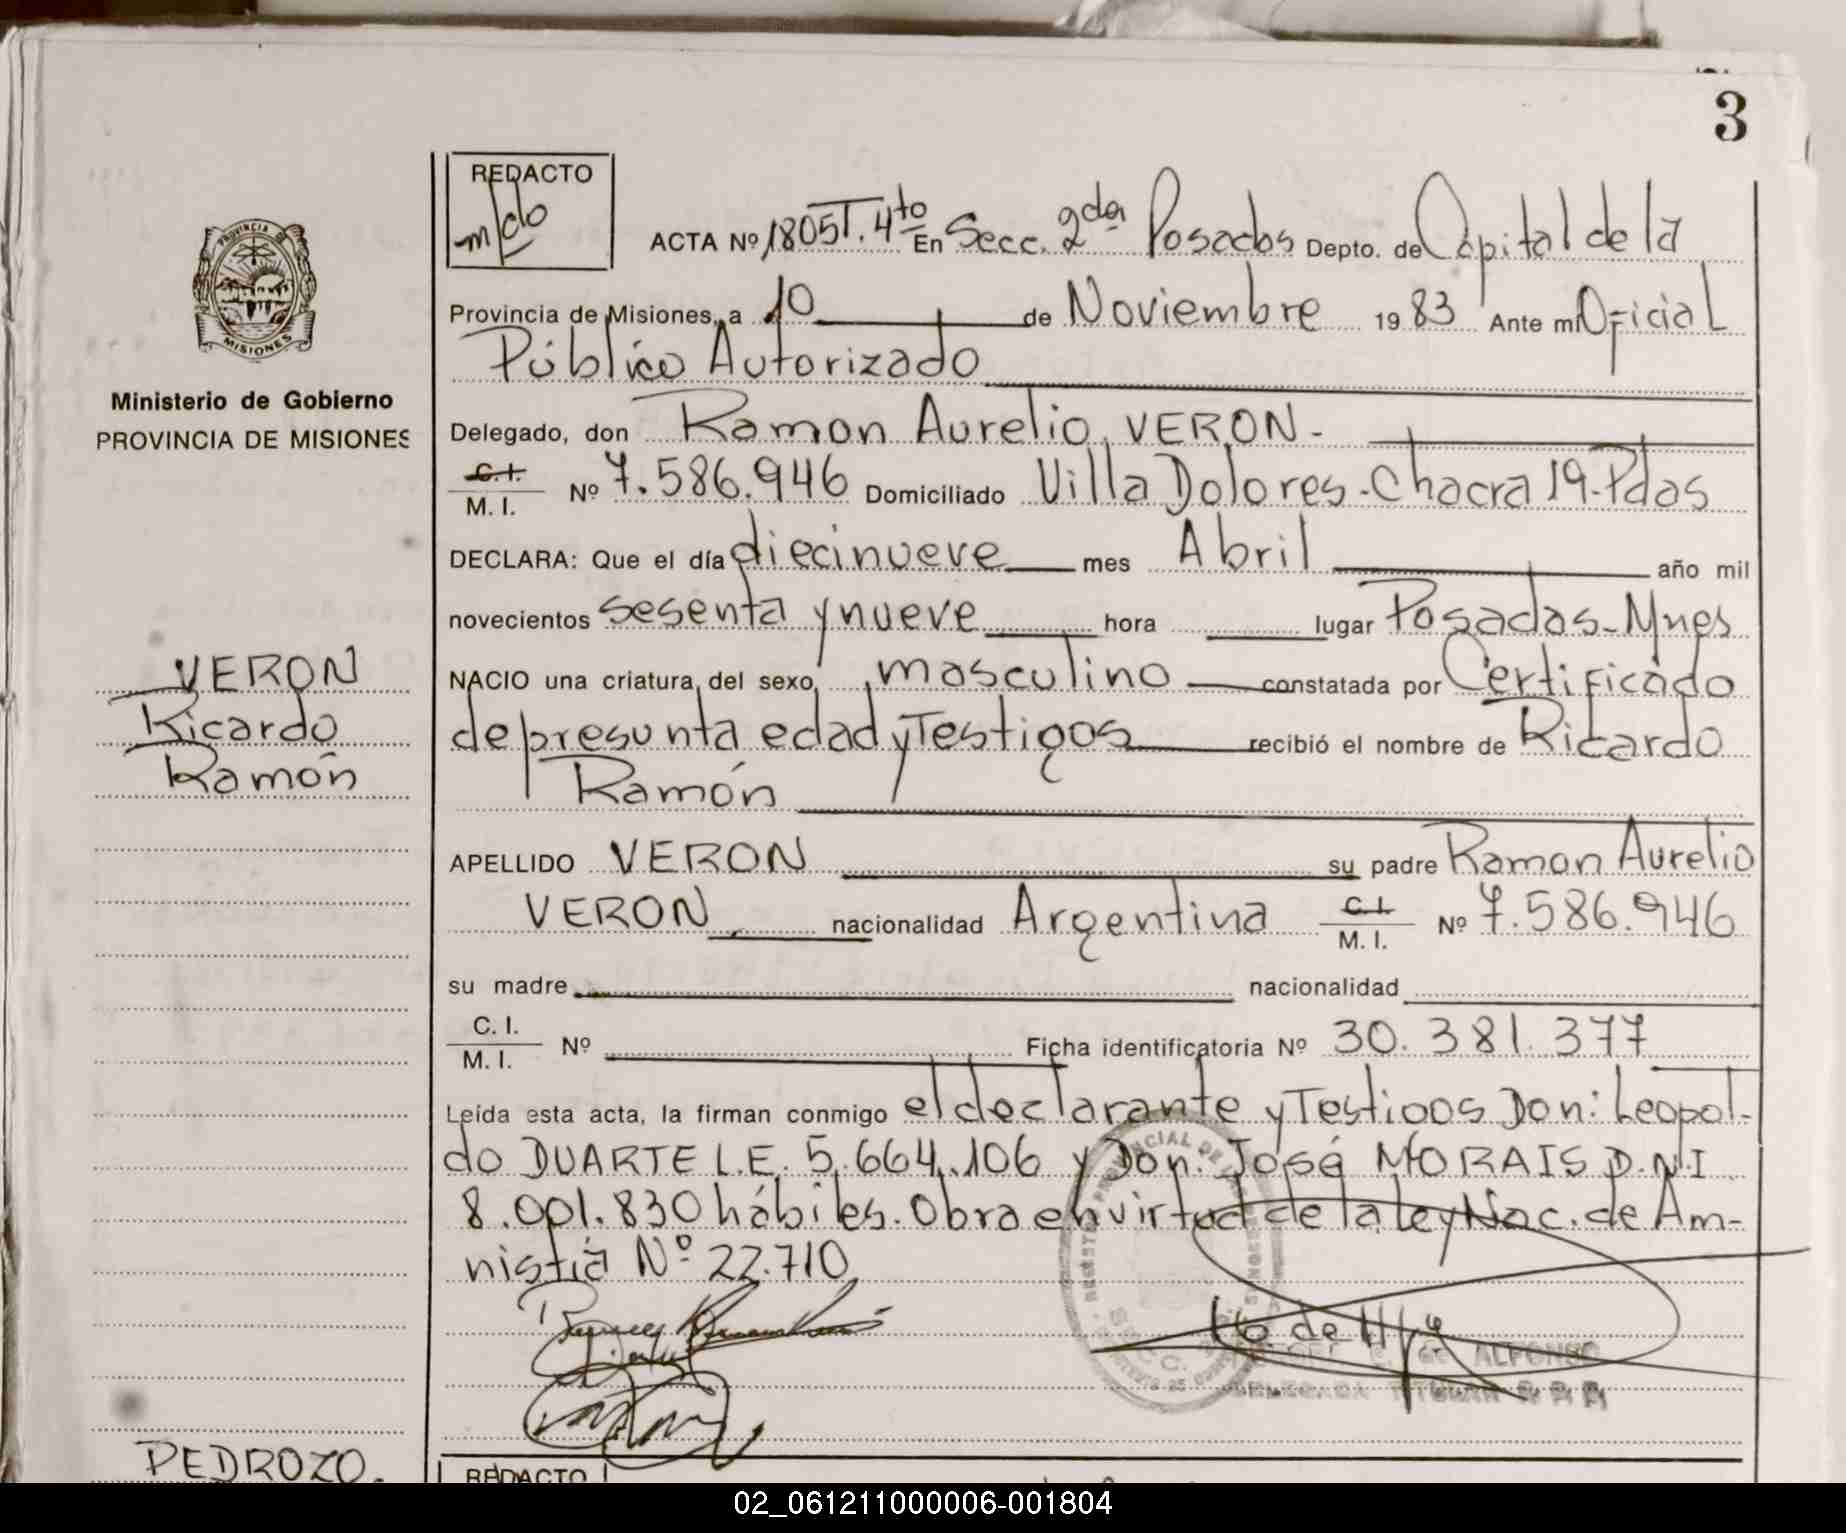 3
REDACTO
m/do
ACTA Nº 1805 T. 4to En Secc. 2da Posadas Depto. de Capital de la
Provincia de Misiones, a 10 de Noviembre 1983 Ante mi Oficial
Público Autorizado
Delegado, don Ramon Aurelio VERON.-
C.I.
M. I. Nº 7.586.946 Domiciliado Villa Dolores-Chacra 19-Pdas
DECLARA: Que el día diecinueve mes Abril año mil
novecientos sesenta y nueve hora lugar Posadas-Mnes
NACIO una criatura del sexo masculino constatada por Certificado
de presunta edad y Testigos recibió el nombre de Ricardo
Ramón
APELLIDO VERON su padre Ramon Aurelio
VERON nacionalidad Argentina C.I.
M. I. Nº 7.586.946
su madre nacionalidad
C. I.
M. I. Nº Ficha identificatoria Nº 30.381.377
Leída esta acta, la firman conmigo el declarante y Testigos Don: Leopol-
do DUARTE L.E. 5.664.106 y Don. José MORAIS D.N.I
8.001.830 hábiles. Obra en virtud de la ley Nac. de Am-
nistía Nº 22.710
de ALFONSO
PROVINCIA
MISIONES
Ministerio de Gobierno
PROVINCIA DE MISIONES
VERON
Ricardo
Ramón
PEDROZO.
REDACTO
02_061211000006-001804